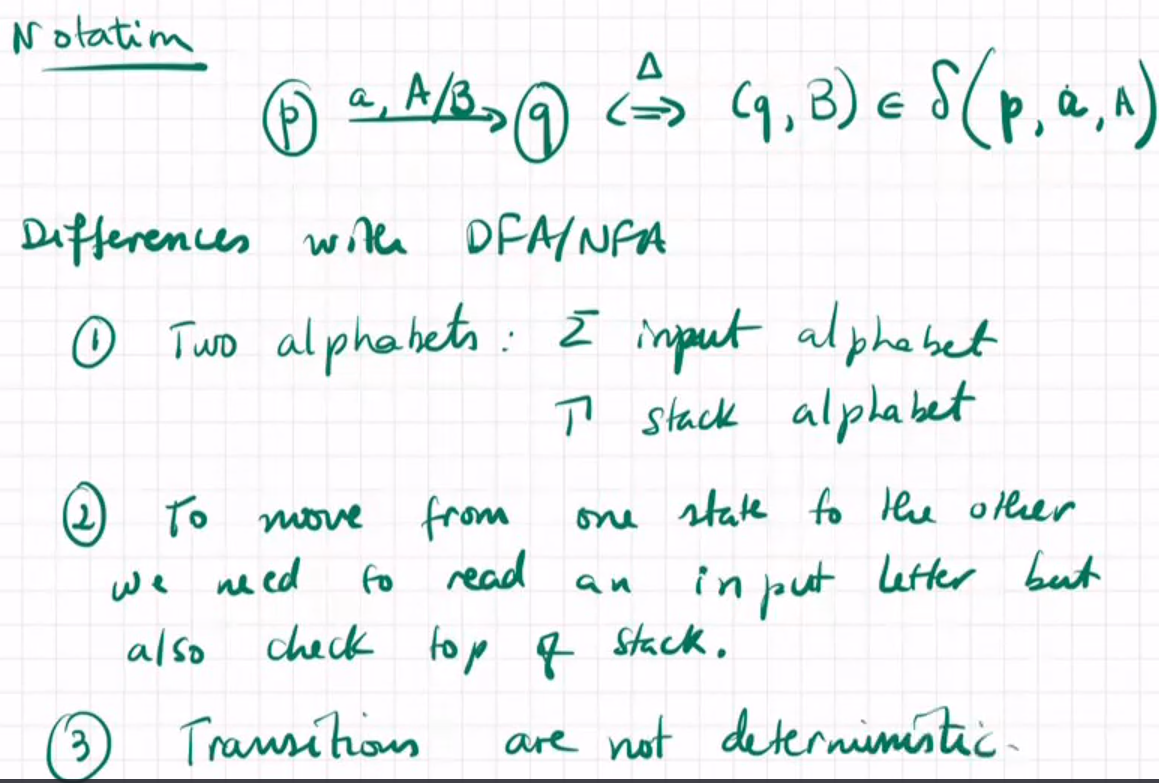 Notation
p a, A/B q ⟺ Δ (q, B) ∈ δ(p, a, A)
Differences with DFA/NFA
① Two alphabets : Σ input alphabet
Γ stack alphabet
② To move from one state to the other
we need to read an input letter but
also check top of stack.
③ Transitions are not deterministic.